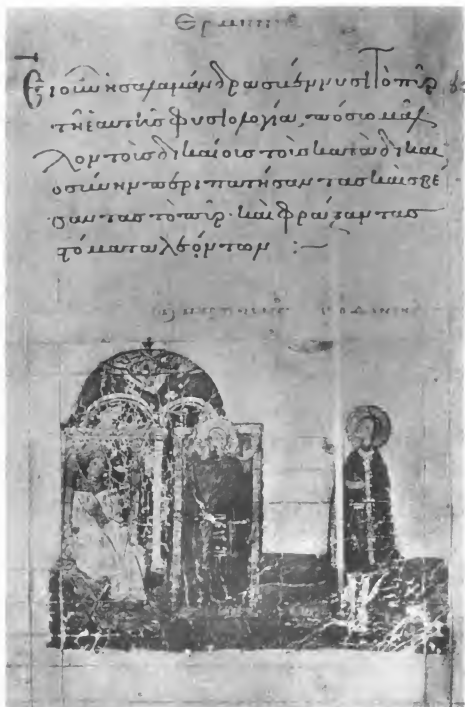 Ερμηνεία
Εἰ οὖν ἡ σαλαμάνδρα σβέννυσι τὸ πῦρ
τῆ ἑαυτῆς φυσιολογία, πόσω μᾶλ
λον τοῖς δικαίοις τοῖς κατὰ δικαι
οσύνην περιπατήσαντας καὶ σβέ
σαντας τὸ πῦρ· καὶ φράξαντας
στόματα λεόντων :~